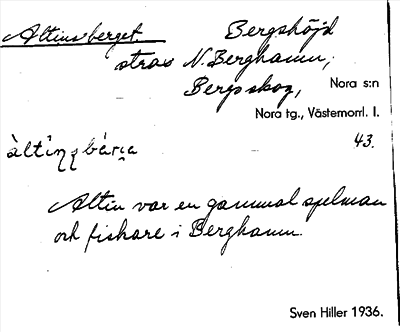 Altinsberget Bergshöjd
strax N. Berghamn,
Bergs skog, Nora s:n
Nora tg., Västernorrl. l.
43.
Altin var en gammal spelman
och fiskare i Berghamn.
Sven Hiller 1936.